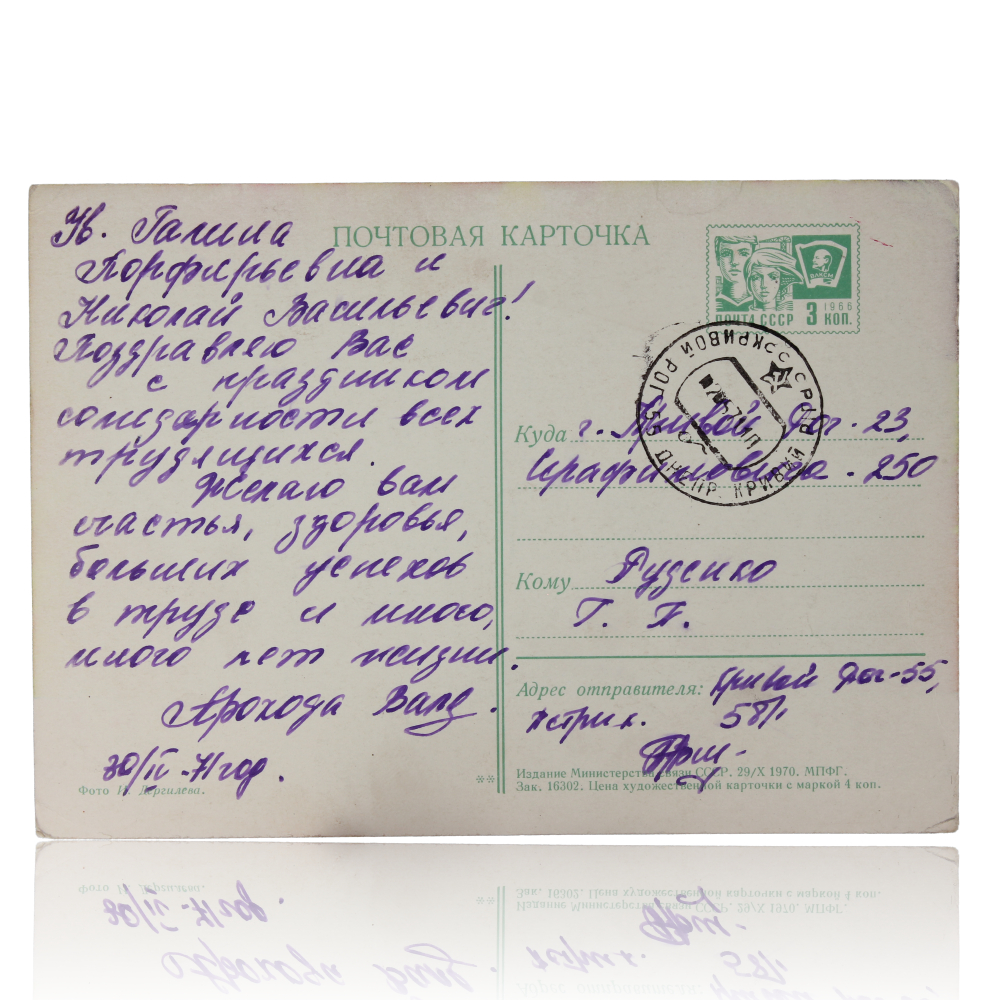 Ув. Галина
Порфирьевна и
Николай Васильевич!
Поздравляю Вас
с праздником
солидарности всех
трудящихся.
Желаю вам
счастья, здоровья,
больших успехов
в труде и много,
много лет жизни.
71 год.
Фото И. Дергилева.
ПОЧТОВАЯ КАРТОЧКА
ВЛКСМ
1966
ПОЧТА СССР 3 КОП.
КРИВОЙ РОГ 55 ДНЕПР. КРИВИЙ РІГ
Куда г. Кривой Рог-23,
Серафимовича-250
Кому Руденко
Г. П.
Адрес отправителя: Кривой Рог-55,
**
Издание Министерства связи СССР. 29/X 1970. МПФГ.
Зак. 16302. Цена художественной карточки с маркой 4 коп.